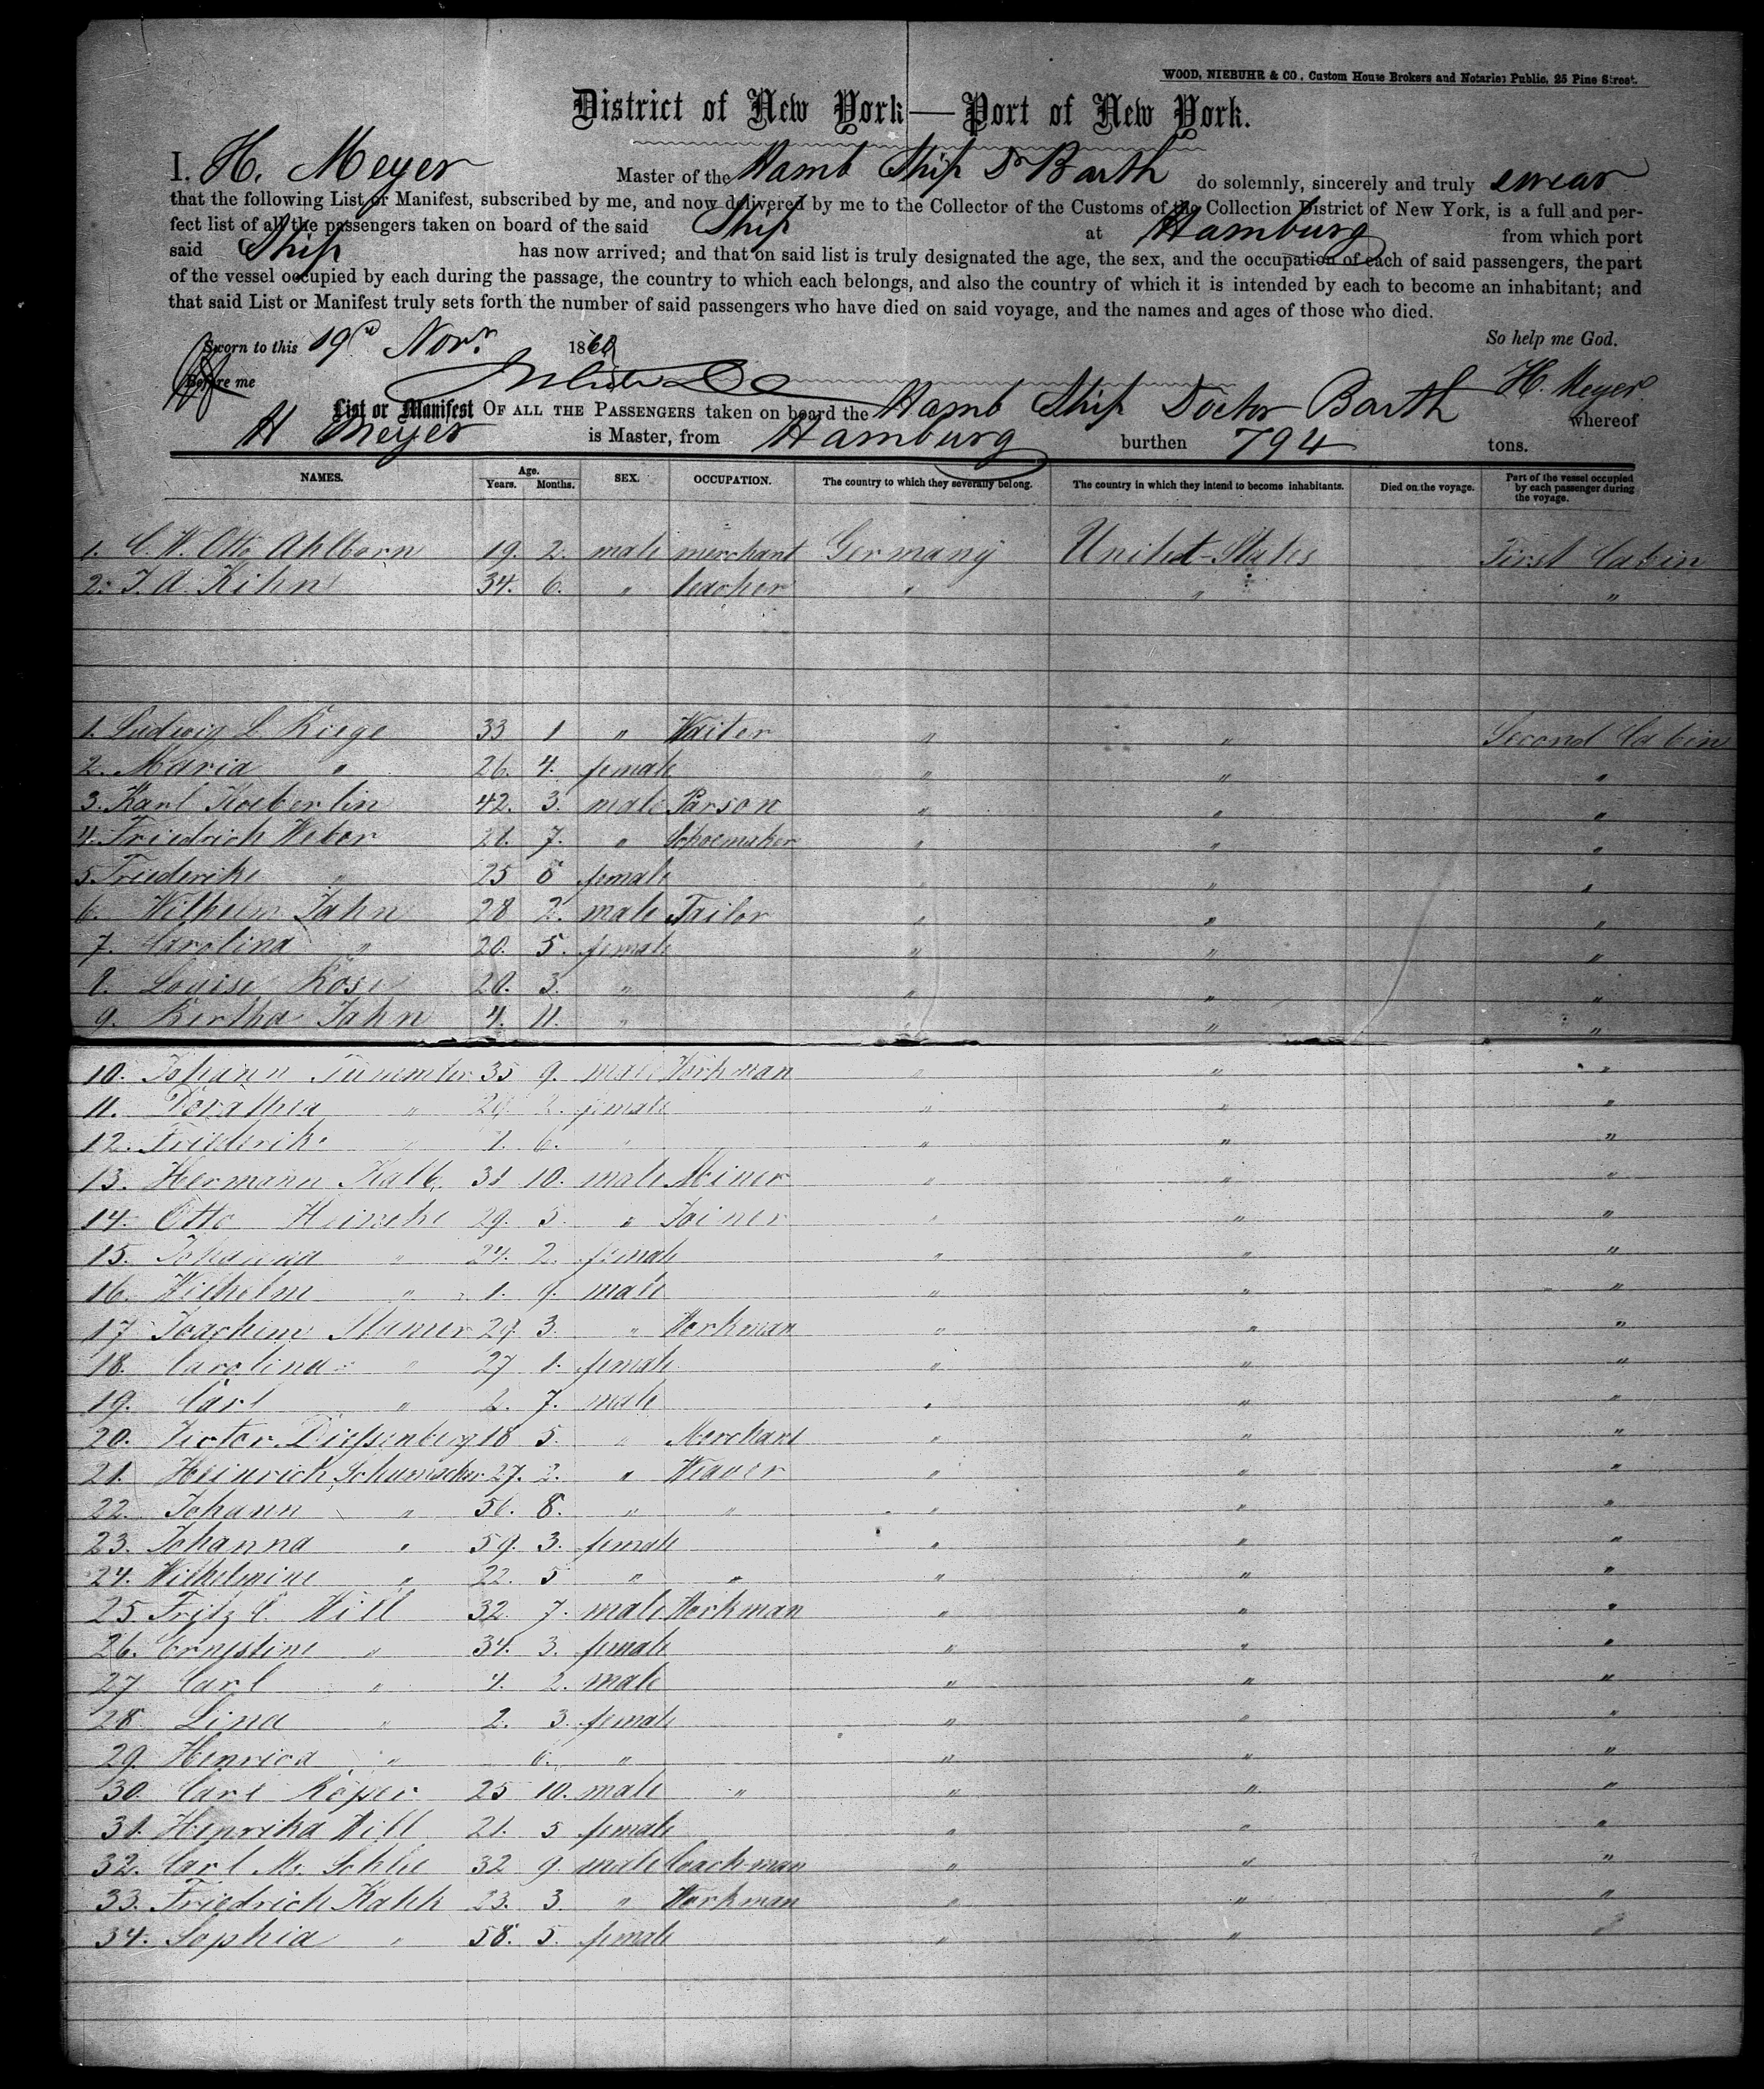 WOOD, NIEBUHR & CO., Custom House Brokers and Notaries Public, 25 Pine Street.
District of New York—Port of New York.
I, H. Meyer Master of the Hamb Ship Dr Barth do solemnly, sincerely and truly swear
that the following List or Manifest, subscribed by me, and now delivered by me to the Collector of the Customs of the Collection District of New York, is a full and per-
fect list of all the passengers taken on board of the said Ship at Hamburg from which port
said Ship has now arrived; and that on said list is truly designated the age, the sex, and the occupation of each of said passengers, the part
of the vessel occupied by each during the passage, the country to which each belongs, and also the country of which it is intended by each to become an inhabitant; and
that said List or Manifest truly sets forth the number of said passengers who have died on said voyage, and the names and ages of those who died.
Sworn to this 19 Novr. 186 So help me God.
Before me H. Meyer
List or Manifest OF ALL THE PASSENGERS taken on board the Hamb Ship Doctor Barth whereof
H Meyer is Master, from Hamburg burthen 794 tons.
NAMES. Age. Years. Months. SEX. OCCUPATION. The country to which they severally belong. The country in which they intend to become inhabitants. Died on the voyage. Part of the vessel occupied by each passenger during the voyage.
1. C. W. Otto Ahlborn 19. 2. male merchant Germany United States First Cabin
2. A. Kihn 34. 6. " teacher " " "
1. Ludwig L Kiege 33 1 " Waiter " " Second Cabin
2. Maria " 26. 4. female " " "
3. Karl Koeberlin 42. 3. male Parson " " "
4. Friedrich Weber 7. " Schoemaker " " "
5. Friederike " 25 female " " "
6. Wilhelm Jahn 28 2. male Tailor " " "
7. Carolina " 20. 5. female " " "
8. Louise Rose 20. 3. " " " "
9. Bertha Jahn 4. 11. " " "
10. Johann 35 9. male Workman " " "
11. Dorathea " female " " "
12. Friederike 1. 6. " " " "
13. Hermann Kalb 10. male Miner " " "
14. Otto 29. 5. " Joiner " " "
15. Johanna " 24. 2. female " " "
16. Wilhelm " 1. 9. male " " "
17 Joachim 29. 3. " Workman " " "
18. Carolina " 27 1. female " " "
19. Carl " 2. 7. male " " "
20. Victor 18 5. " Merchant " " "
21. Heinrich Schumacher 27. 2. " Weaver " " "
22. Johann " 56. 8. " " " " "
23. Johanna " 59. 3. female " " "
24. Wilhelmine " 22. 5 " " " " "
25. Fritz C. Will 32. 7. male Workman " " "
26. Ernestine " 34. 3. female " " "
27 Carl " 4. 2. male " " "
28 Lina " 2. 3. female " " "
29. Henrica " 6. " " " "
30. Carl 25 10. male " " " "
31. Henrika Will 21. 5 female " " "
32. Carl M. Schlie 32 9. male Coachman " " "
33. Friedrich Kahk 23. 3. " Workman " " "
34. Sophia " 58. 5. female " "